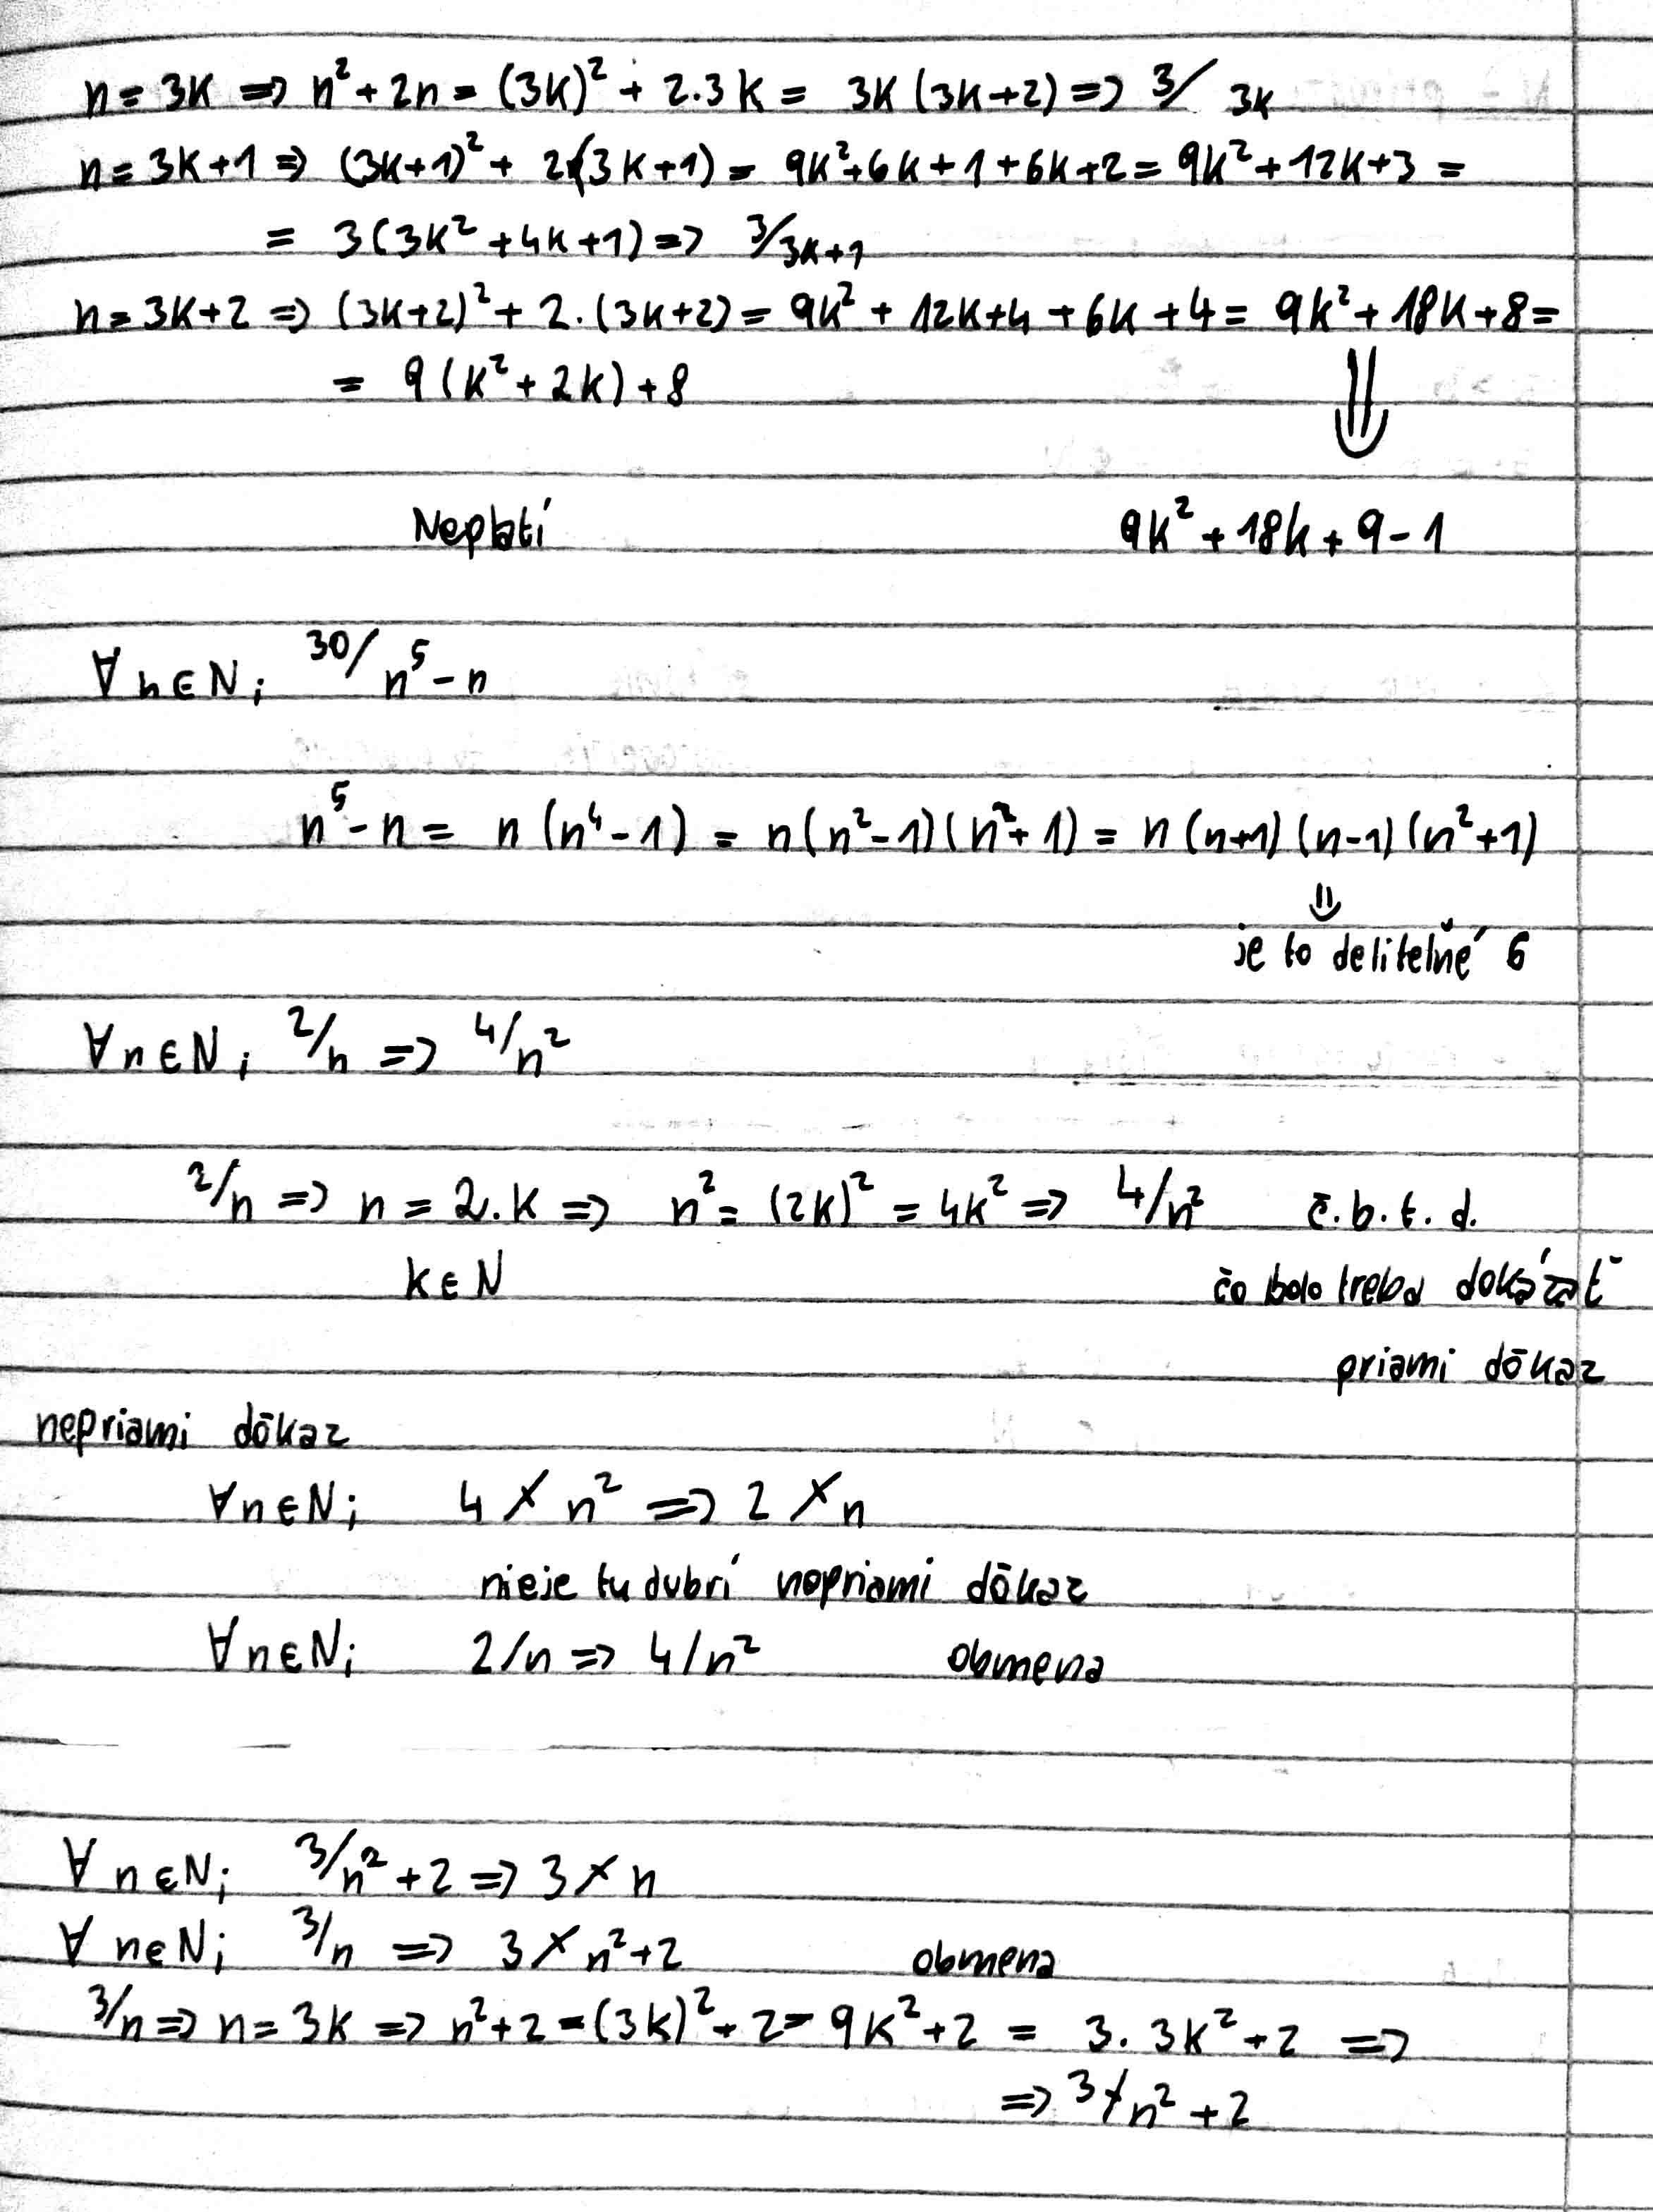 n = 3k => n² + 2n = (3k)² + 2.3k = 3k (3k+2) => 3/ 3k
n = 3k+1 => (3k+1)² + 2(3k+1) = 9k²+6k+1+6k+2 = 9k²+12k+3 =
= 3(3k²+4k+1) => 3/3k+1
n = 3k+2 => (3k+2)² + 2.(3k+2) = 9k² + 12k+4 + 6k + 4 = 9k² + 18k + 8 =
= 9(k² + 2k) + 8 ⇓
Neplatí 9k² + 18k + 9 - 1
∀ n∈N; 30/ n⁵ - n
n⁵ - n = n (n⁴ - 1) = n(n² - 1)(n² + 1) = n (n+1) (n-1) (n² + 1)
⇓
je to deliteľné 6
∀n∈N; 2/n => 4/n²
2/n => n = 2.k => n² = (2k)² = 4k² => 4/n² č.b.t.d.
k∈N čo bolo treba dokázať
priami dôkaz
nepriami dôkaz
∀n∈N; 4 ∤ n² => 2 ∤ n
nieje tu dubrí nepriami dôkaz
∀n∈N; 2/n => 4/n² obmena
∀ n∈N; 3/n² + 2 => 3 ∤ n
∀ n∈N; 3/n => 3 ∤ n² + 2 obmena
3/n => n = 3k => n² + 2 = (3k)² + 2 = 9k² + 2 = 3. 3k² + 2 =>
=> 3 ∤ n² + 2